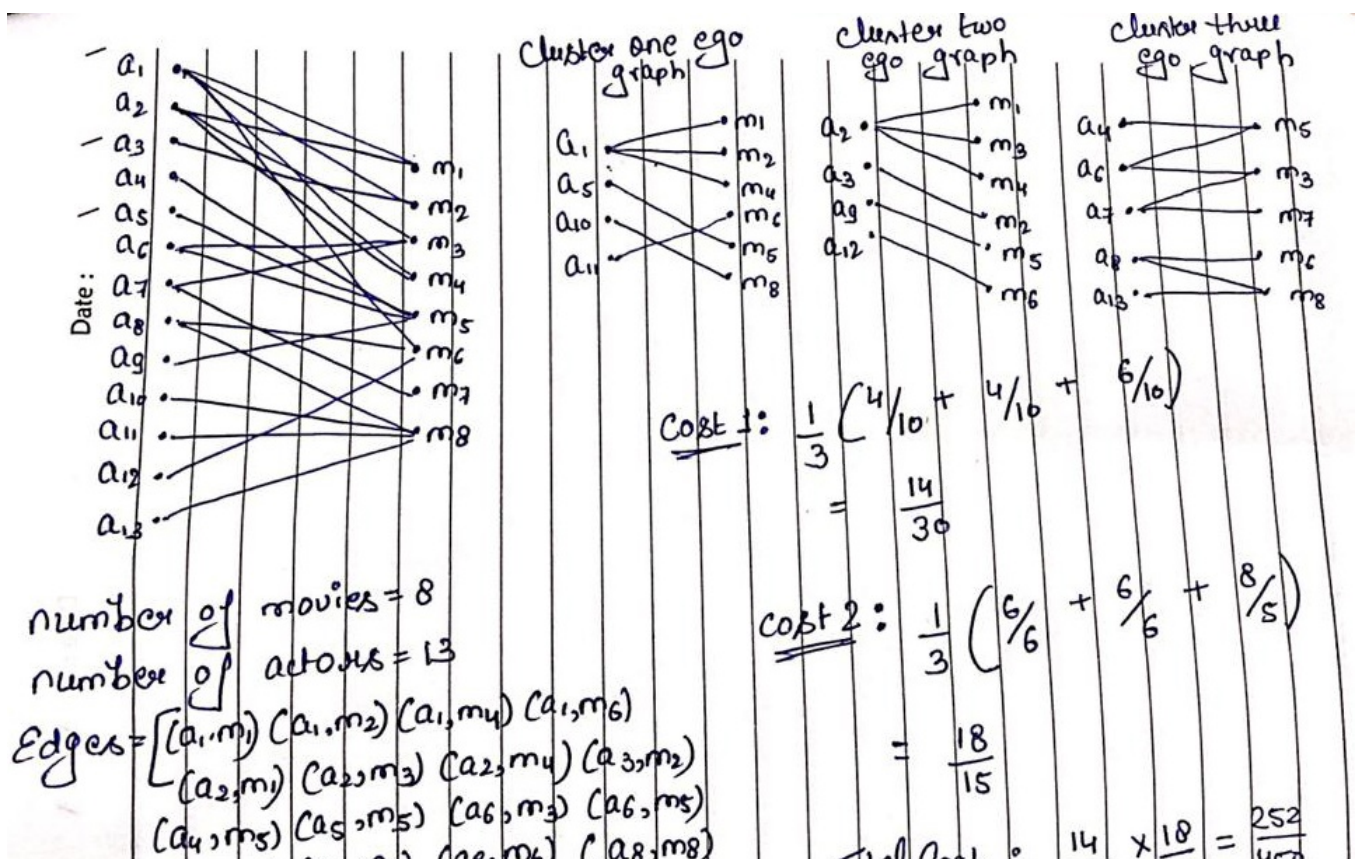 Date:
a1
a2
a3
a4
a5
a6
a7
a8
a9
a10
a11
a12
a13
m1
m2
m3
m4
m5
m6
m7
m8
Cluster one ego
graph
a1
a5
a10
a11
m1
m2
m4
m6
m5
m8
Cluster two
ego graph
a2
a3
a9
a12
m1
m3
m4
m2
m5
m6
Cluster three
ego graph
a4
a6
a7
a8
a13
m5
m3
m7
m6
m8
Cost 1: 1/3 (4/10 + 4/10 + 6/10)
= 14/30
Cost 2: 1/3 (6/6 + 6/6 + 8/5)
= 18/15
number of movies = 8
number of actors = 13
Edges = [(a1,m1) (a1,m2) (a1,m4) (a1,m6)
(a2,m1) (a2,m3) (a2,m4) (a3,m2)
(a4,m5) (a5,m5) (a6,m3) (a6,m5)
(a8,m8)
14 × 18 = 252